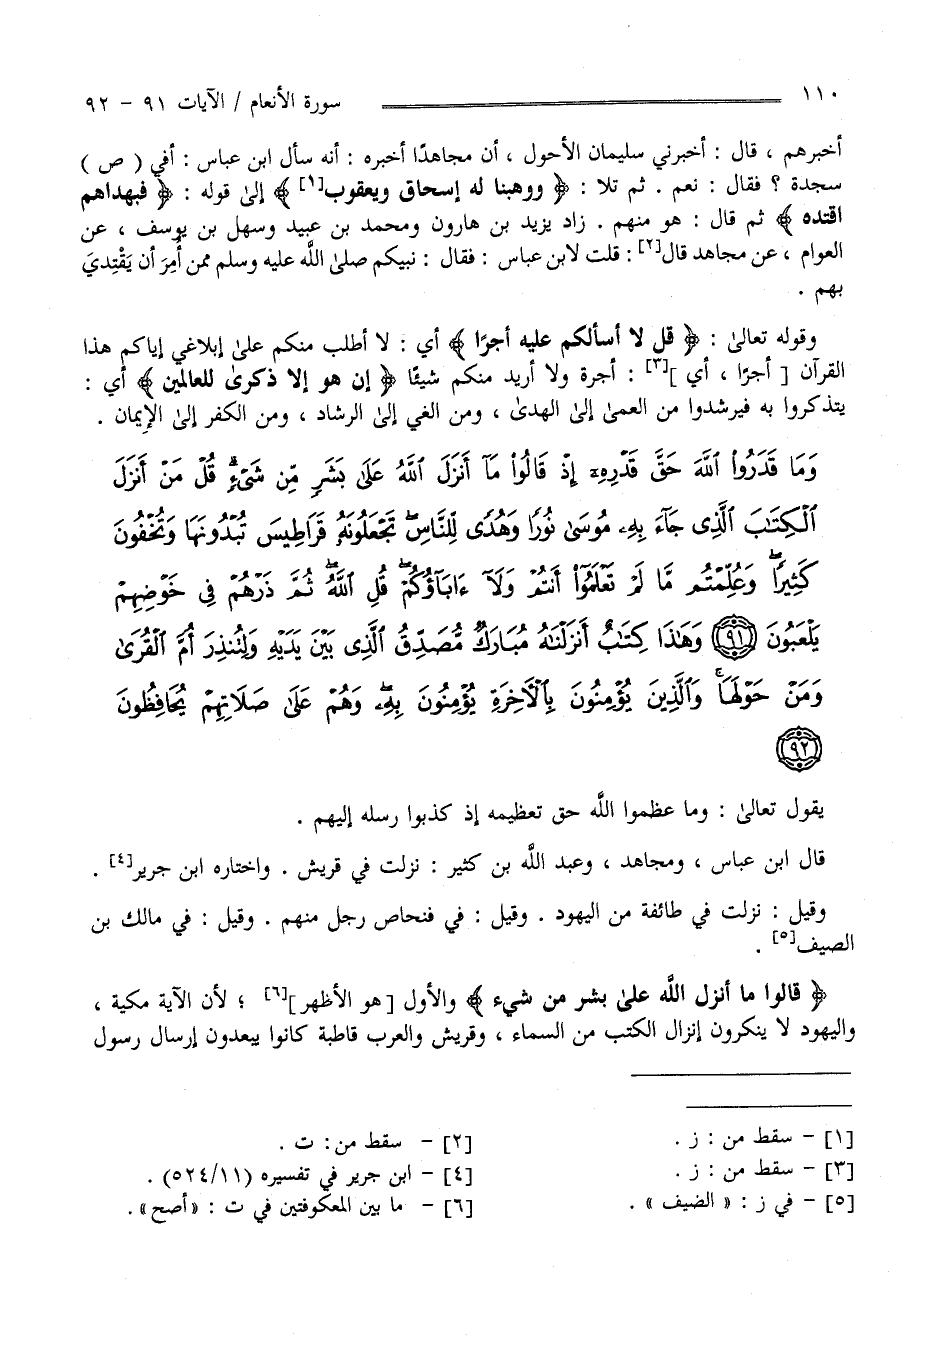 ١١٠ سورة الأنعام / الآيات ٩١ - ٩٢
أخبرهم ، قال : أخبرني سليمان الأحول ، أن مجاهدًا أخبره : أنه سأل ابن عباس : أفي ( ص )
سجدة ؟ فقال : نعم . ثم تلا : ﴿ ووهبنا له إسحاق ويعقوب[١] ﴾ إلىٰ قوله : ﴿ فبهداهم
اقتده ﴾ ثم قال : هو منهم . زاد يزيد بن هارون ومحمد بن عبيد وسهل بن يوسف ، عن
العوام ، عن مجاهد قال[٢] : قلت لابن عباس : فقال : نبيكم صلىٰ اللَّه عليه وسلم ممن أُمِرَ أن يَقْتِديَ
بهم .
وقوله تعالىٰ : ﴿ قل لا أسألكم عليه أجرًا ﴾ أي : لا أطلب منكم علىٰ إبلاغي إياكم هذا
القرآن [ أجرًا ، أي ][٣] : أجرة ولا أريد منكم شيئًا ﴿ إن هو إلا ذكرىٰ للعالمين ﴾ أي :
يتذكروا به فيرشدوا من العمىٰ إلىٰ الهدىٰ ، ومن الغي إلىٰ الرشاد ، ومن الكفر إلىٰ الإيمان .
وَمَا قَدَرُواْ ٱللَّهَ حَقَّ قَدْرِهِۦٓ إِذْ قَالُواْ مَآ أَنزَلَ ٱللَّهُ عَلَىٰ بَشَرٍ مِّن شَىْءٍۗ قُلْ مَنْ أَنزَلَ
ٱلْكِتَٰبَ ٱلَّذِى جَآءَ بِهِۦ مُوسَىٰ نُورًا وَهُدًى لِّلنَّاسِۖ تَجْعَلُونَهُۥ قَرَاطِيسَ تُبْدُونَهَا وَتُخْفُونَ
كَثِيرًاۖ وَعُلِّمْتُم مَّا لَمْ تَعْلَمُوٓاْ أَنتُمْ وَلَآ ءَابَآؤُكُمْۖ قُلِ ٱللَّهُۖ ثُمَّ ذَرْهُمْ فِى خَوْضِهِمْ
يَلْعَبُونَ ﴿٩١﴾ وَهَٰذَا كِتَٰبٌ أَنزَلْنَٰهُ مُبَارَكٌ مُّصَدِّقُ ٱلَّذِى بَيْنَ يَدَيْهِ وَلِتُنذِرَ أُمَّ ٱلْقُرَىٰ
وَمَنْ حَوْلَهَاۚ وَٱلَّذِينَ يُؤْمِنُونَ بِٱلْأَخِرَةِ يُؤْمِنُونَ بِهِۦۖ وَهُمْ عَلَىٰ صَلَاتِهِمْ يُحَافِظُونَ
﴿٩٢﴾
يقول تعالىٰ : وما عظموا اللَّه حق تعظيمه إذ كذبوا رسله إليهم .
قال ابن عباس ، ومجاهد ، وعبد اللَّه بن كثير : نزلت في قريش . واختاره ابن جرير[٤] .
وقيل : نزلت في طائفة من اليهود . وقيل : في فنحاص رجل منهم . وقيل : في مالك بن
الصيف[٥] .
﴿ قالوا ما أنزل اللَّه علىٰ بشر من شيء ﴾ والأول [ هو الأظهر ][٦] ؛ لأن الآية مكية ،
واليهود لا ينكرون إنزال الكتب من السماء ، وقريش والعرب قاطبة كانوا يبعدون إرسال رسول
[١] - سقط من : ز . [٢] - سقط من: ت .
[٣] - سقط من : ز . [٤] - ابن جرير في تفسيره (٥٢٤/١١) .
[٥] - في ز : « الضيف » . [٦] - ما بين المعكوفتين في ت : «أصح» .